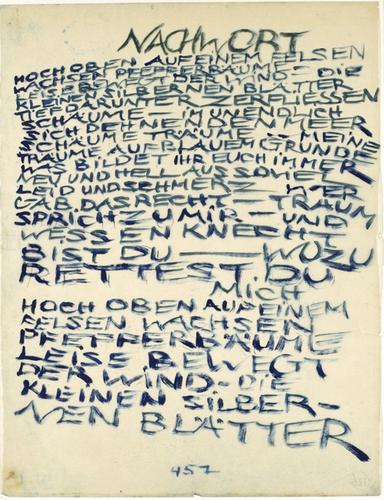 NACHWORT
HOCH OBEN AUF EINEM FELSEN
WACHSEN PFEFFERBÄUME – DIE
LEISE BEWEGT DER WIND – DIE
KLEINEN SILBERNEN BLÄTTER
TIEF DARUNTER ZERFLIESSEN
SCHÄUME – IM UNENDLICH
SICH DEHNENDEN MEER
SCHÄUME TRÄUME – MEINE
TRÄUME AUF BLAUEM GRUNDE
WAS BILDET IHR EUCH IMMER
NEU UND HELL AUS SOVIEL
LEID UND SCHMERZ – WER
GAB DAS RECHT – TRAUM
SPRICH ZU MIR – UND
WESSEN KNECHT
BIST DU – WOZU
RETTEST DU
MICH
HOCH OBEN AUF EINEM
FELSEN WACHSEN
PFEFFERBÄUME
LEISE BEWEGT
DER WIND – DIE
KLEINEN SILBER–
NEN BLÄTTER
457